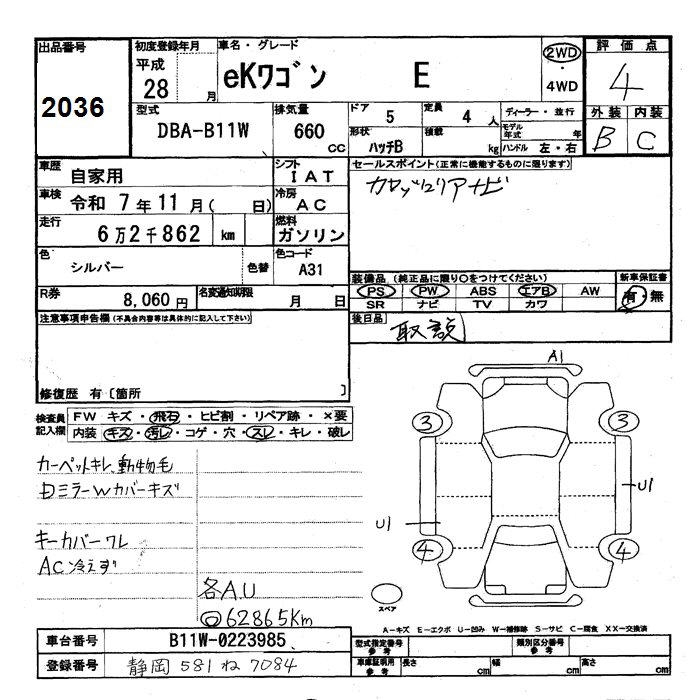 出品番号
2036
初度登録年月
平成
28 月
車名・グレード
eKワゴン E
2WD
・
4WD
評価点
4
外装 内装
B C
型式
DBA-B11W
排気量
660 CC
ドア 5
定員 4 人
ディーラー・並行
形状 ハッチB
積載 kg
モデル年式 年
ハンドル 左・右
車歴 自家用
シフト IAT
車検 令和 7年11月( 日)
冷房 AC
走行 6万2千862 km
燃料 ガソリン
色 シルバー 色替
色コード A31
R券 8,060円
名変通知期限 月 日
セールスポイント(正常に機能するものに限ります)
カロッツェリアナビ
装備品(純正品に限り○をつけてください)
PS PW ABS エアB AW
SR ナビ TV カワ
新車保証書
有・無
後日品 取説
注意事項申告欄(不具合内容等は具体的に記入して下さい)
修復歴 有〔箇所 〕
検査員記入欄
FW キズ・飛石・ヒビ割・リペア跡・×要
内装 キズ・汚レ・コゲ・穴・スレ・キレ・破レ
カーペットキレ、動物毛
ミラーWカバーキズ
キーカバーワレ
AC冷えず
各A.U
62865Km
A1
3 3
U1
U1
4 4
スペア
A-キズ E-エクボ U-凹み W-補修跡 S-サビ C-腐食 XX-交換済
車台番号 B11W-0223985
登録番号 静岡 581 ね 7084
型式指定番号 参考
類別区分番号 参考
車庫証明用 参考
長さ cm 幅 cm 高さ cm